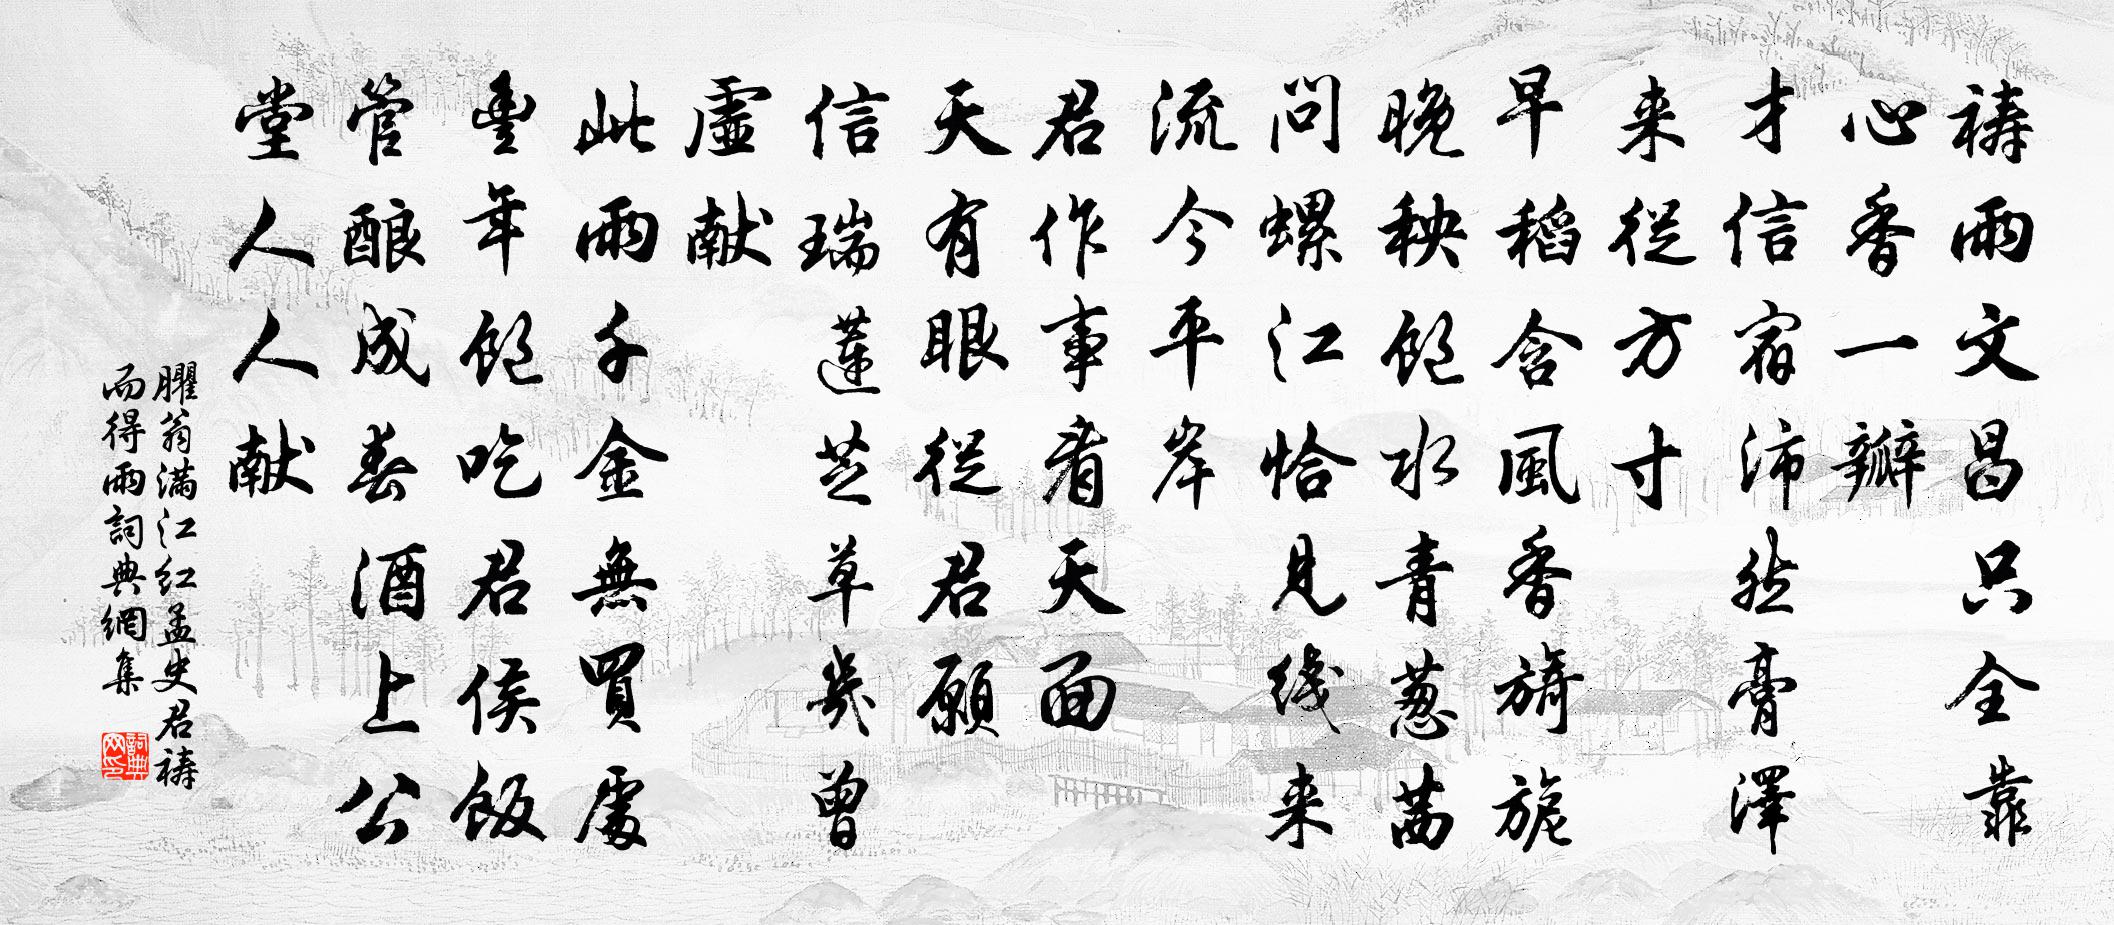 祷雨文昌只全靠
心香一瓣
才信宿沛然膏澤
来從方寸
早稻含風香旖旎
晚秧饱水青葱茜
問螺江恰見线来
流今平岸
君作事看天面
天有眼從君願
信瑞蓮芝草幾曾
虚献
此雨千金無買處
豐年饱吃君侯飯
管酿成春酒上公
堂人人献
臞翁满江红孟史君祷
而得雨詞典網集
詞典网印